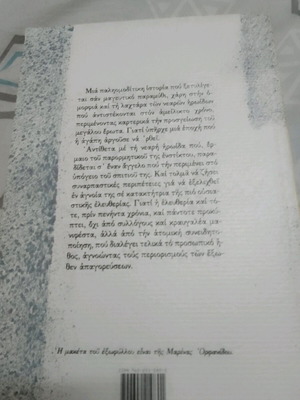 Μιά παλιομοδίτικη ἱστορία πού ξετυλίγε-
ται σάν μαγευτικό παραμύθι, χάρη στήν ὀ-
μορφιά καί τή λαχτάρα τῶν νεαρῶν ἡρωίδων
πού ἀντιστέκονται στόν ἀμείλικτο χρόνο,
περιμένοντας καρτερικά τήν προσγείωση τοῦ
μεγάλου ἔρωτα. Γιατί ὑπῆρχε μιά ἐποχή πού
ἡ ἀγάπη ἀργοῦσε νά 'ρθεῖ.
Ἀντίθετα μέ τή νεαρή ἡρωίδα πού, ἕρ-
μαιο τοῦ παρορμητικοῦ της ἐνστίκτου, παρα-
δίδεται σ' ἕναν ἄγγελο πού τήν περιμένει στό
ὑπόγειο τοῦ σπιτιοῦ της. Καί τολμᾶ νά ζήσει
συναρπαστικές περιπέτειες γιά νά ἐξελιχθεῖ
ἐν ἀγνοία της σέ κατακτήτρια τῆς πιό οὐσια-
στικῆς ἐλευθερίας. Γιατί ἡ ἐλευθερία καί τό-
τε, πρίν πενήντα χρόνια, καί πάντοτε προκύ-
πτει, ὄχι ἀπό συλλόγους καί κραυγαλέα μα-
νιφέστα, ἀλλά ἀπό τήν ἀτομική συνειδητο-
ποίηση, πού διαλέγει τελικά τό προσωπικό ἦ-
θος, ἀγνοώντας τούς περιορισμούς τῶν ἔξω-
θεν ἀπαγορεύσεων.
Ἡ μακέτα τοῦ ἐξωφύλλου εἶναι τῆς Μαρίνας Ὀρφανίδου.